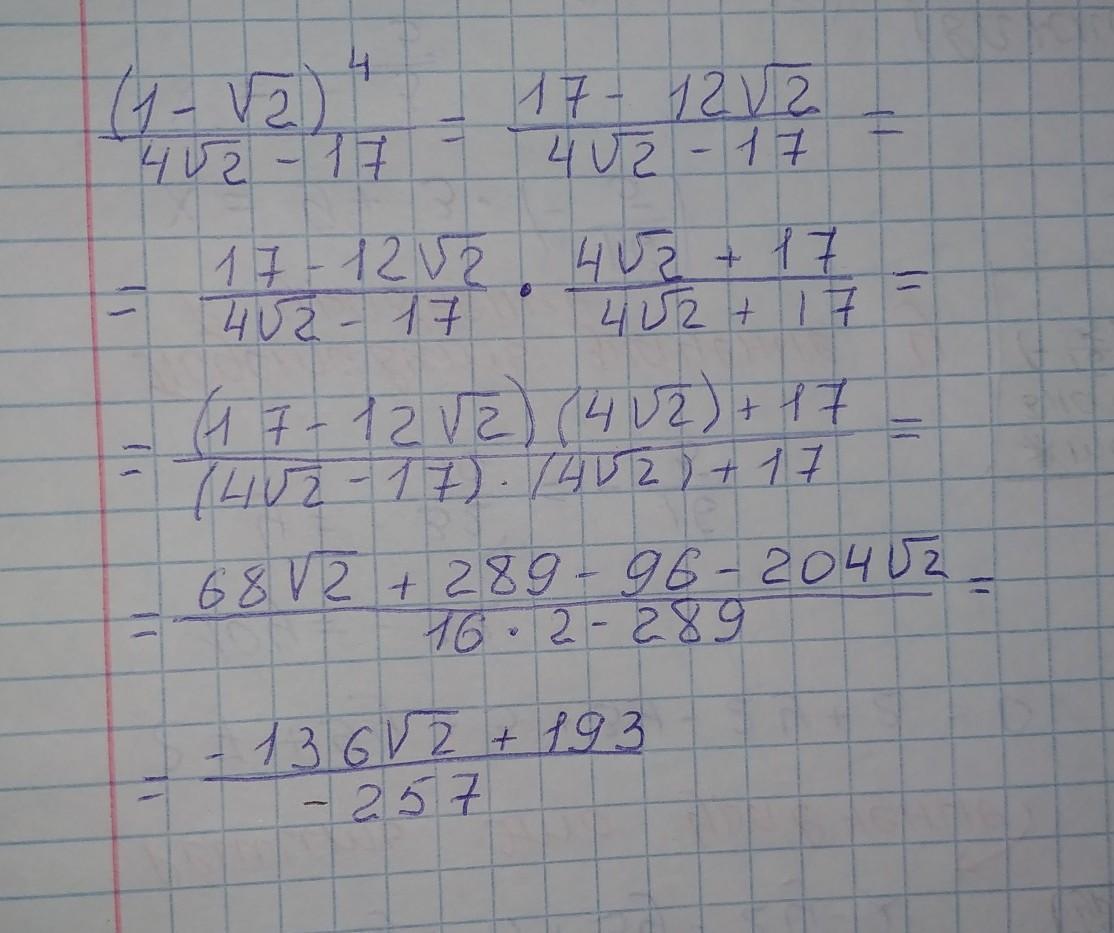 (1 - √2)^4 / (4√2 - 17) = (17 - 12√2) / (4√2 - 17) =
= (17 - 12√2) / (4√2 - 17) · (4√2 + 17) / (4√2 + 17) =
= ((17 - 12√2)(4√2) + 17) / ((4√2 - 17) · (4√2) + 17) =
= (68√2 + 289 - 96 - 204√2) / (16 · 2 - 289) =
= (-136√2 + 193) / (-257)